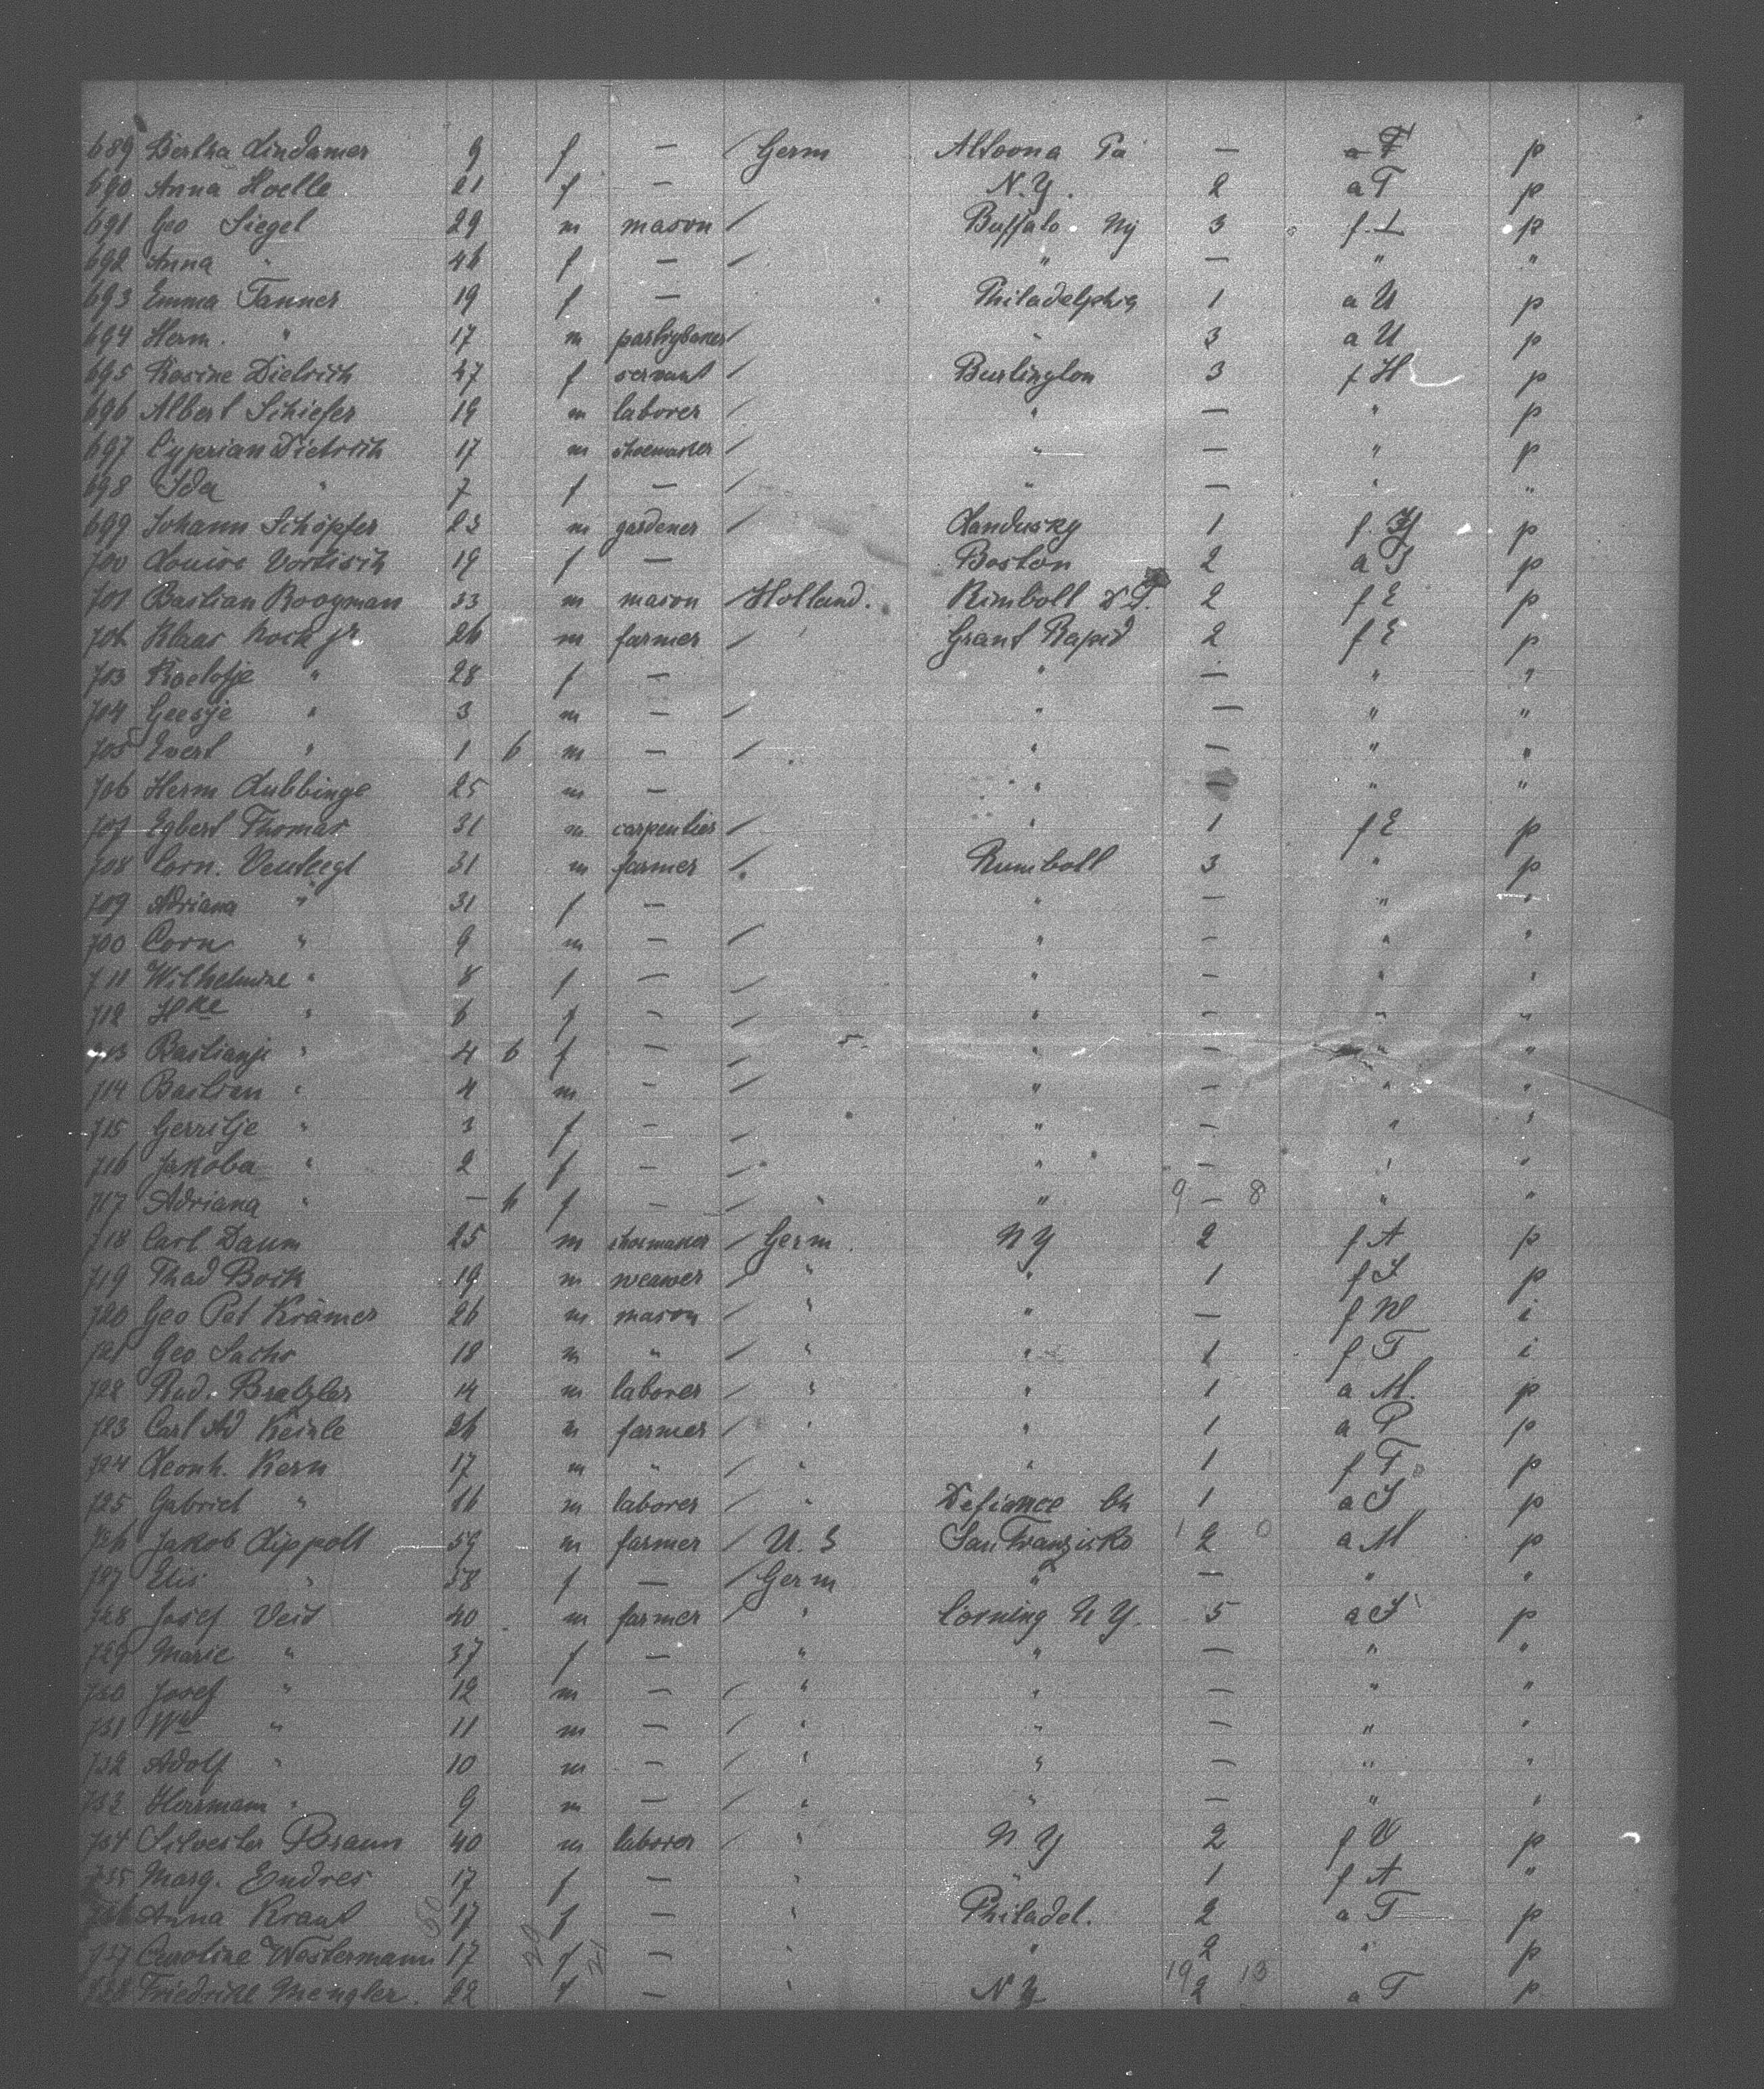 689 Bertha Lindamer 9 f — / Germ Altoona Pa — a F p
690 Anna Hoelle 21 f — N.Y. 2 a T p
691 Geo Siegel 29 m mason / Buffalo Ny 3 f L p
692 Anna " 46 f — / " — " "
693 Emma Tanner 19 f — Philadelphia 1 a U p
694 Herm. " 17 m / " 3 a U p
695 Rosine Dietrich 47 f servant / Burlington 3 f H p
696 Albert Schiefer 19 m laborer / " — " p
697 Cyprian Dietrich 17 m shoemaker / " — " p
698 Ida " 7 f — / " — " "
699 Johann Schöpfer 23 m gardener / Sandusky 1 f p
700 Louise Vortisch 19 f — Boston 2 a p
701 Bastian Roogman 33 m mason / Holland. Kimboll D T. 2 f E p
702 Klaas Kock jr 26 m farmer / " Grant Rapid 2 f E p
703 Roelofje " 28 f — " — " "
704 Geesje " 3 m — / " — " "
705 Evert " 1 6 m — / " — " "
706 Herm Lubbinge 25 m — " — " "
707 Egbert Thomas 31 m carpentier / " 1 f E p
708 Corn. 31 m farmer / 3 " p
709 Adriana " 31 f — " — " "
700 Corn " 9 m — / " — " "
711 Wilhelmine " 8 f — / " — " "
712 Hke " 6 f — / " — " "
713 Bastianje " 4 6 f — / " — " "
714 Bastian " 4 m — / " — " "
715 Gerritje " 3 f — / " — " "
716 Jakoba " 2 f — / " — " "
717 Adriana " — f — / " " 9 — 8 " "
718 Carl Daum 25 m shoemaker / Germ. N Y 2 f A p
719 Thad Bock 19 m weawer / " " 1 f p
720 Geo Pet Krämer 26 m mason / " " — f W i
721 Geo Sachs 18 m " / " " 1 f T i
722 Rud. Bratzler 14 m laborer / " " 1 a M. p
723 Carl Ad Keinle 26 m farmer / " " 1 a P p
724 Leonh. Kern 17 m " / " " 1 f T p
725 Gabriel " 16 m laborer / " Defiance 1 a p
726 Jakob Lippolt 59 m farmer / U. S San Franzisko 1 2 0 a M p
727 Elis " 58 f — / Germ " — " "
728 Josef Veit 40 m farmer / " Corning N Y. 5 a p
729 Marie " 37 f — " " — " "
730 Josef " 12 m — / " " — " "
731 Wm " 11 m — / " " — " "
732 Adolf " 10 m — / " " — " "
733 Herrmann " 9 m — / " " — " "
734 Silvester Braun 40 m laborer / " N Y 2 f p
735 Marg. Endres 17 f — " " 1 f A "
736 Anna Kraut 17 f — " Philadel. 2 a T p
737 Caroline Westermann 17 f — " " 2 " p
738 Friedrike Mengler. 22 f — " N Y 19 2 13 a T p